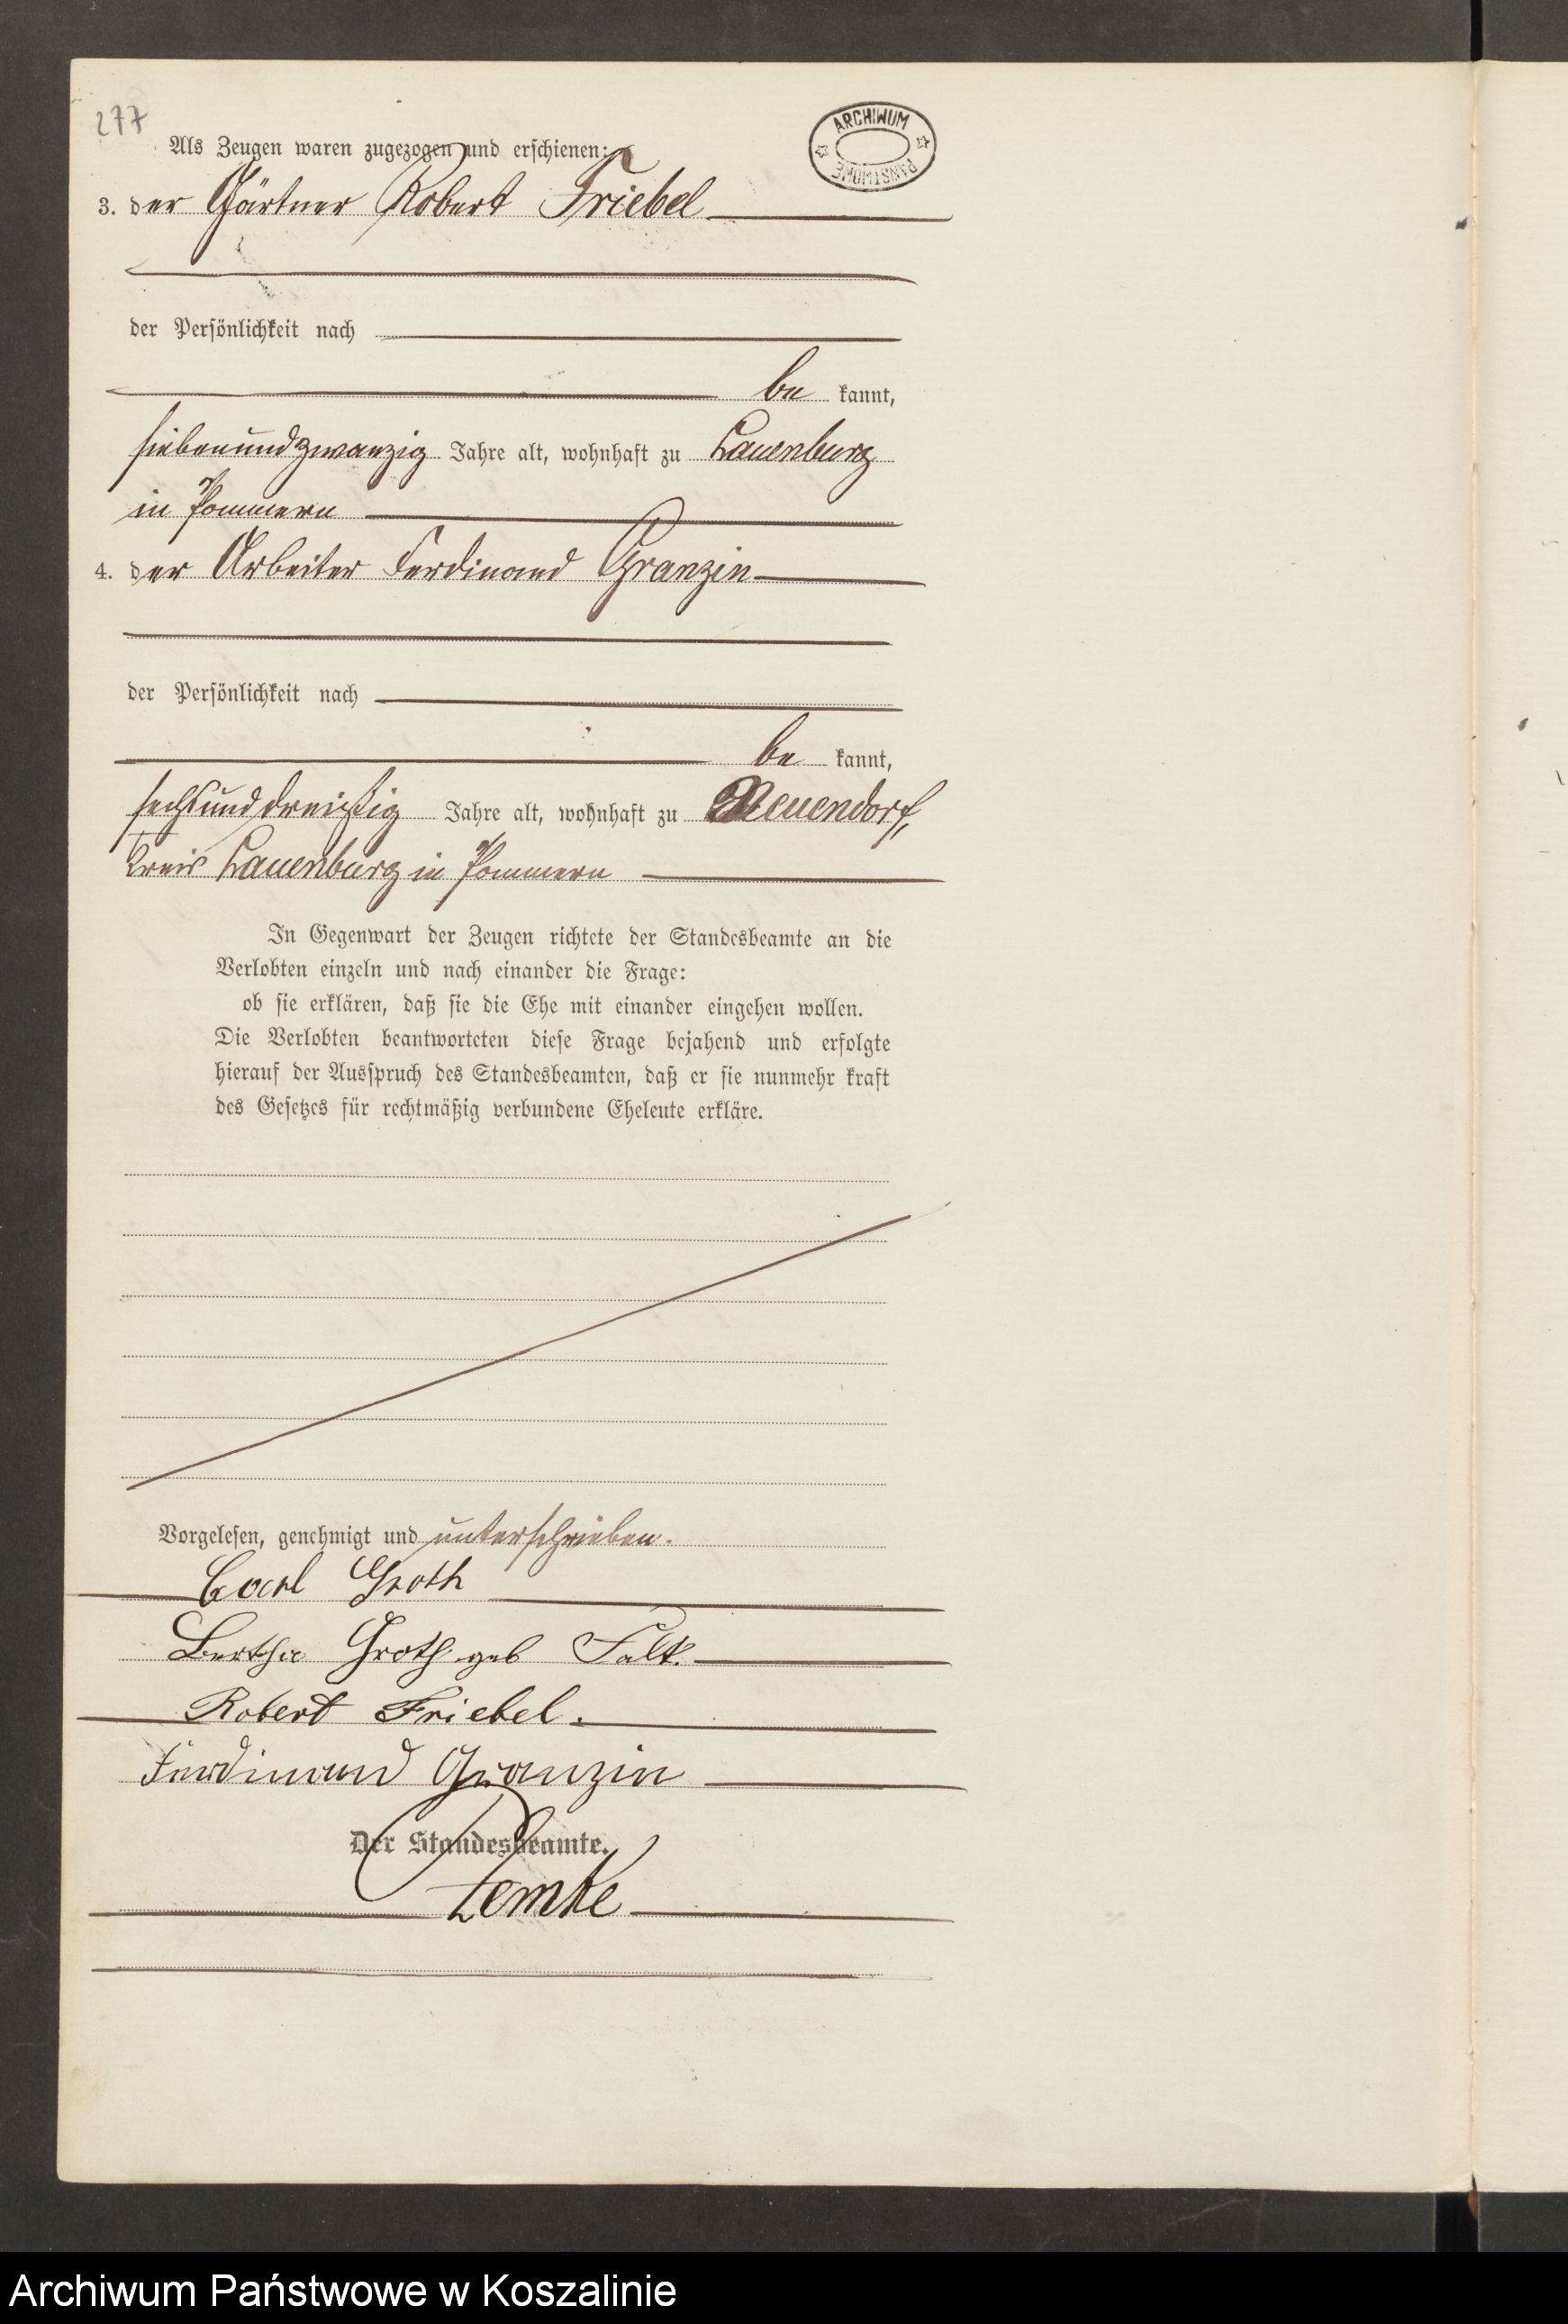 277
ARCHIWUM
PAŃSTWOWE
Als Zeugen waren zugezogen und erschienen:
3. der Gärtner Robert Friebel
der Persönlichkeit nach
be kannt,
siebenundzwanzig Jahre alt, wohnhaft zu Lauenburg
in Pommern
4. der Arbeiter Ferdinand Granzin
der Persönlichkeit nach
be kannt,
sechsunddreißig Jahre alt, wohnhaft zu Neuendorf,
Kreis Lauenburg in Pommern
In Gegenwart der Zeugen richtete der Standesbeamte an die
Verlobten einzeln und nach einander die Frage:
ob sie erklären, daß sie die Ehe mit einander eingehen wollen.
Die Verlobten beantworteten diese Frage bejahend und erfolgte
hierauf der Ausspruch des Standesbeamten, daß er sie nunmehr kraft
des Gesetzes für rechtmäßig verbundene Eheleute erkläre.
Vorgelesen, genehmigt und unterschrieben.
Carl Groth
Bertha Groth geb Falk.
Robert Friebel.
Ferdinand Granzin
Der Standesbeamte.
Zemke
Archiwum Państwowe w Koszalinie